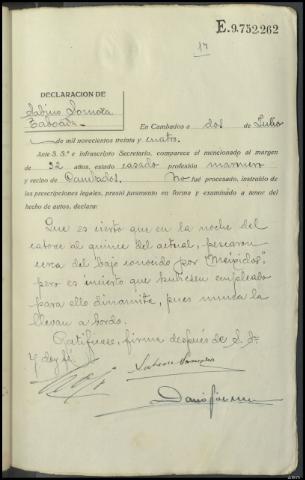 E.9.752.262
17
DECLARACION DE
Sabino Somoza
Taboada.
En Cambados a dos de Julio
de mil novecientos treinta y cuatro.
Ante S. S.ª e infrascripto Secretario, comparece el mencionado al margen
de 32 años, estado casado profesión marinero
y vecino de Cambados. No fué procesado, instruido de
las prescripciones legales, prestó juramento en forma y examinado a tenor del
hecho de autos, declara:
Que es cierto que en la noche del
catorce al quince del actual, pescaron
cerca del bajo conocido por
pero es incierto que hubiesen empleado
para ello dinamita, pues nunca la
llevan a bordo.
Ratifícase, firma después de S. Sª
y doy fé.